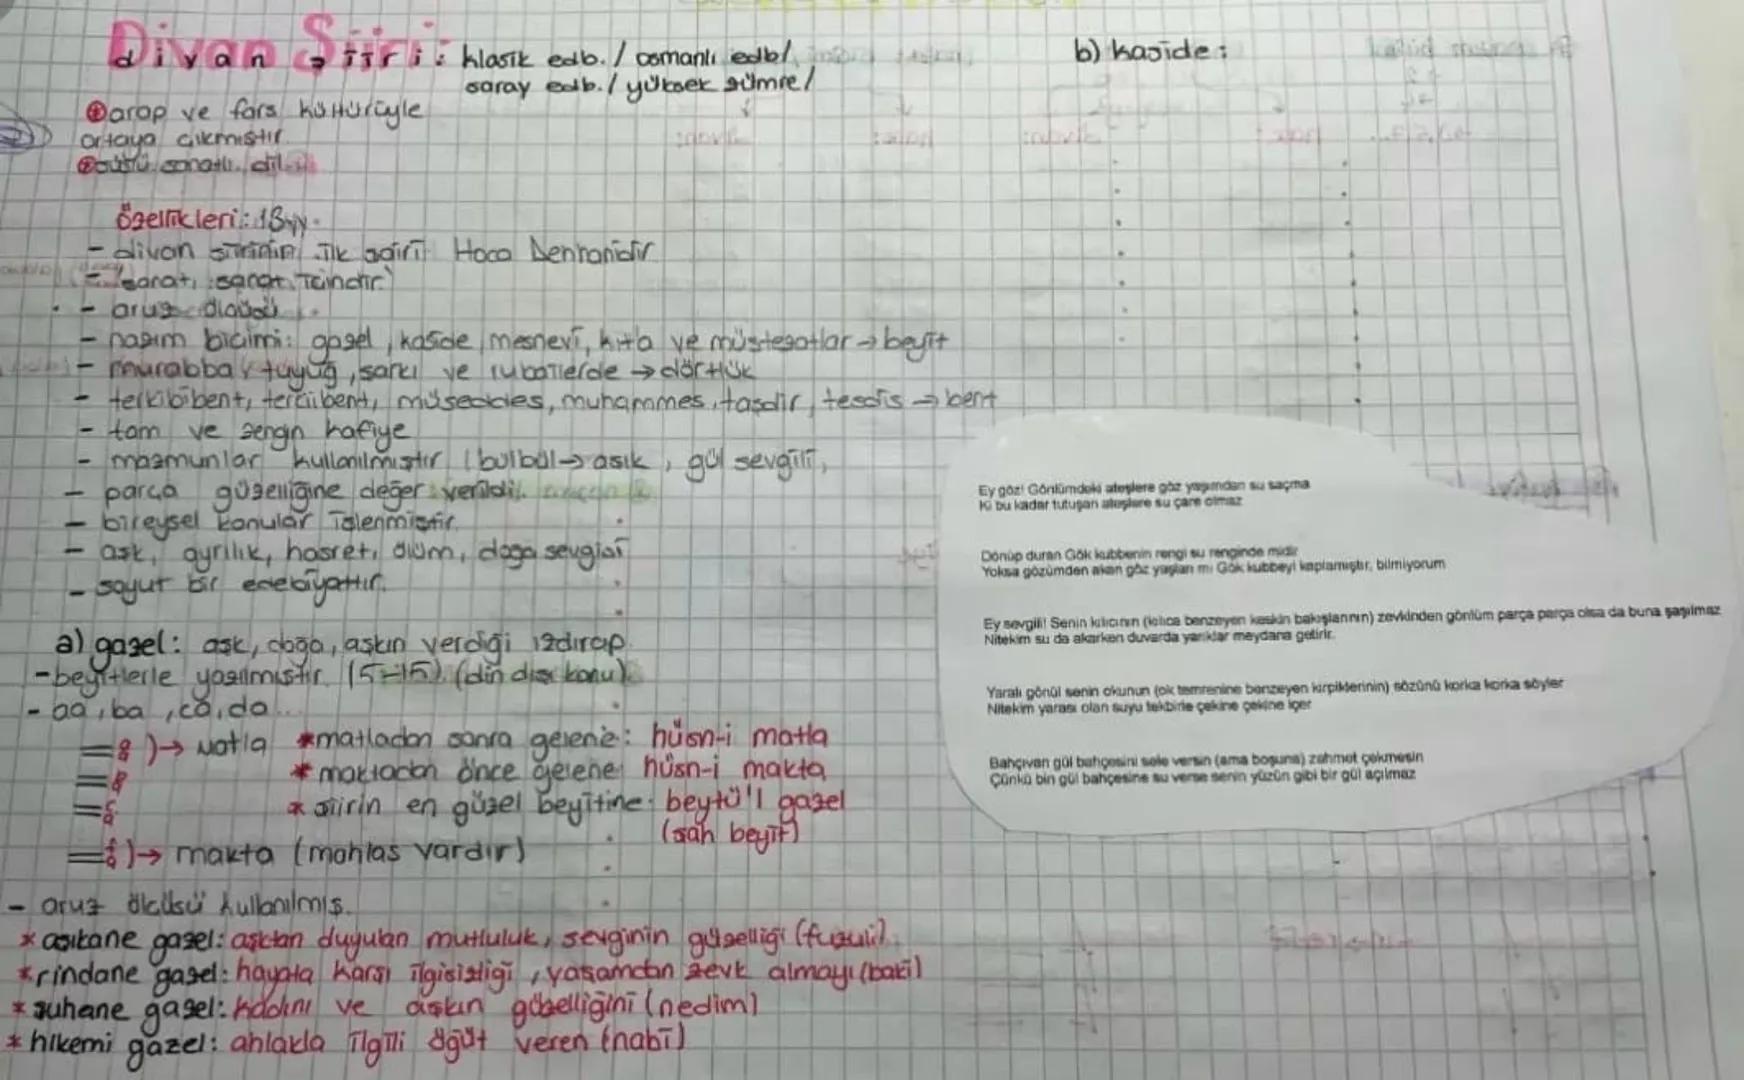 Divan Şiiri
divan şiiri: klasik edb. / osmanlı edb/
saray edb. / yüksek zümre/
arap ve fars kültürüyle
ortaya çıkmıştır
süslü sanatlı dil
özellikleri: 13yy.
- divan şiirinin ilk şairi Hoca Dehhanidir
- "sanat, sanat içindir."
- aruz ölçüsü
- nazım biçimi: gazel, kaside, mesnevi, kıta ve müstezatlar → beyit
- murabba, tuyuğ, şarkı ve rubailerde → dörtlük
- terkibibent, terciibent, müseddes, muhammes, taşdir, tesdis → bent
- tam ve zengin kafiye
- mazmunlar kullanılmıştır (bülbül → aşık, gül sevgili,
- parça güzelliğine değer verildi.
- bireysel konular işlenmiştir.
- aşk, ayrılık, hasret, ölüm, doğa sevgisi
- soyut bir edebiyattır.
a) gazel: aşk, doğa, aşkın verdiği ızdırap.
- beyitlerle yazılmıştır. (5-15). (din dışı konu)
- aa, ba, ca, da...
)→ matla *matladan sonra gelene: hüsn-i matla
* maktadan önce gelene: hüsn-i makta
* şiirin en güzel beyitine: beytü'l gazel
(şah beyit)
)→ makta (mahlas vardır)
- aruz ölçüsü kullanılmış.
* aşıkane gazel: aşktan duyulan mutluluk, sevginin güzelliği (fuzuli).
* rindane gazel: hayata karşı ilgisizliği, yaşamdan zevk almayı (baki)
* şuhane gazel: kadını ve aşkın güzelliğini (nedim)
* hikemi gazel: ahlakla ilgili öğüt veren (nabi)
b) kaside:
Ey göz! Gönlümdeki ateşlere göz yaşımdan su saçma
Ki bu kadar tutuşan ateşlere su çare olmaz
Dönüp duran Gök kubbenin rengi su renginde midir
Yoksa gözümden akan göz yaşları mı Gök kubbeyi kaplamıştır, bilmiyorum
Ey sevgili! Senin kılıcının (kılıca benzeyen keskin bakışlarının) zevkinden gönlüm parça parça olsa da buna şaşılmaz
Nitekim su da akarken duvarda yarıklar meydana getirir.
Yaralı gönül senin okunun (ok temrenine benzeyen kirpiklerinin) sözünü korka korka söyler
Nitekim yarası olan suyu tekbirle çekine çekine içer
Bahçıvan gül bahçesini sele versin (ama boşuna) zahmet çekmesin
Çünkü bin gül bahçesine su verse senin yüzün gibi bir gül açılmaz